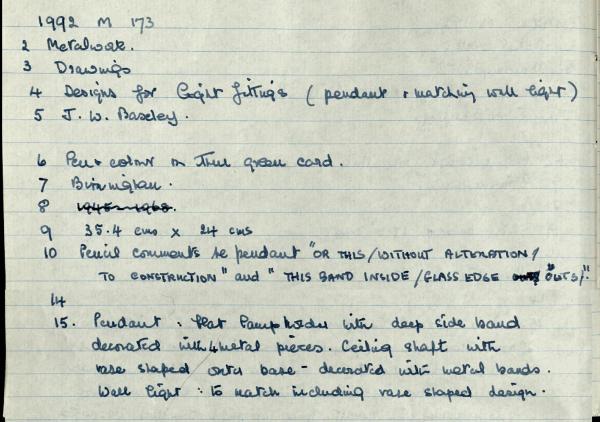 1992 M 173
2 Metalwork.
3 Drawings
4 Designs for light fittings (pendant & matching wall light)
5 J. W. Baseley.
6 Pen & colour on thin green card.
7 Birmingham.
8 1945-1968.
9 35.4 cms x 24 cms
10 Pencil comments re pendant "OR THIS/WITHOUT ALTERATION/
TO CONSTRUCTION" and "THIS BAND INSIDE/GLASS EDGE "OUTS/."
14
15. Pendant : flat lampholder with deep side band
decorated with 4 metal pieces. Ceiling shaft with
vase shaped base - decorated with metal bands.
Wall light : to match including vase shaped design.